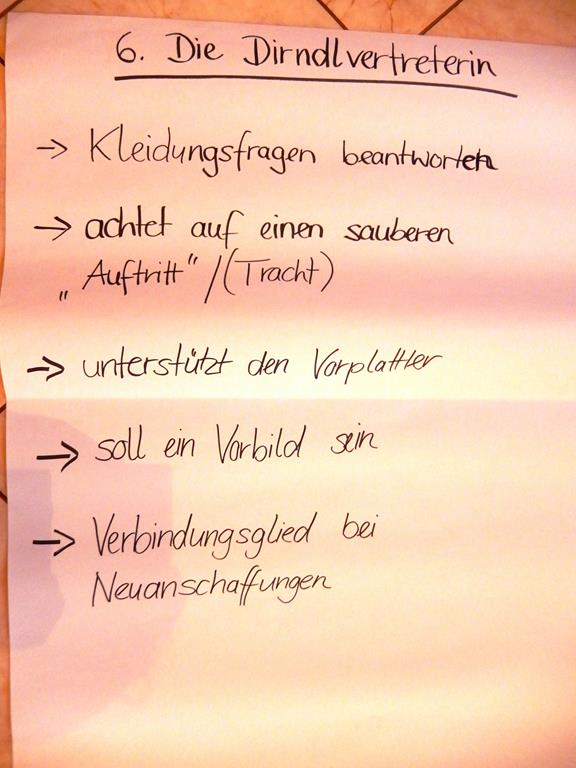 6. Die Dirndlvertreterin
→ Kleidungsfragen beantworten
→ achtet auf einen sauberen
„Auftritt"/(Tracht)
→ unterstützt den Vorplattler
→ soll ein Vorbild sein
→ Verbindungsglied bei
Neuanschaffungen